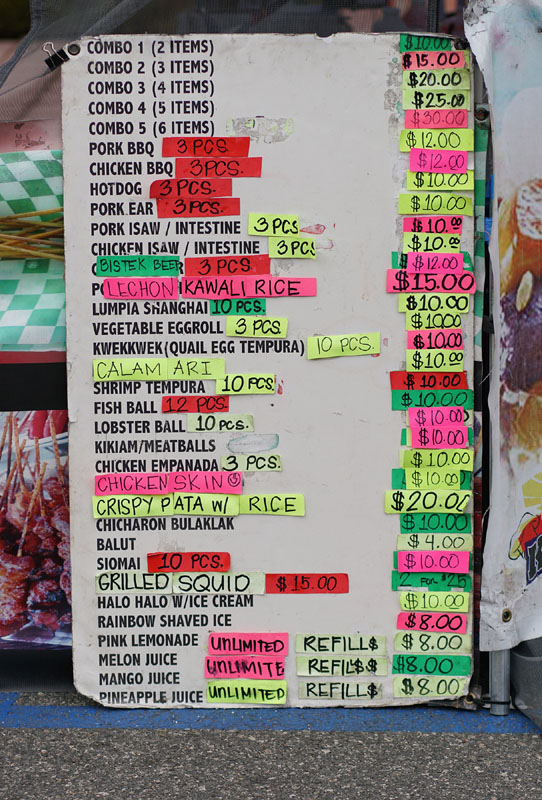 COMBO 1 (2 ITEMS) $10.00
COMBO 2 (3 ITEMS) $15.00
COMBO 3 (4 ITEMS) $20.00
COMBO 4 (5 ITEMS) $25.00
COMBO 5 (6 ITEMS) $30.00
PORK BBQ 3 PCS. $12.00
CHICKEN BBQ 3 PCS. $12.00
HOTDOG 3 PCS. $10.00
PORK EAR 3 PCS. $10.00
PORK ISAW / INTESTINE 3 PCS $10.00
CHICKEN ISAW / INTESTINE 3 PCS $10.00
BISTEK BEEF 3 PCS. $12.00
LECHON KAWALI RICE $15.00
LUMPIA SHANGHAI 10 PCS. $10.00
VEGETABLE EGGROLL 3 PCS. $10.00
KWEKKWEK(QUAIL EGG TEMPURA) 10 PCS. $10.00
CALAM ARI $10.00
SHRIMP TEMPURA 10 PCS. $10.00
FISH BALL 12 PCS. $10.00
LOBSTER BALL 10 PCS. $10.00
KIKIAM/MEATBALLS $10.00
CHICKEN EMPANADA 3 PCS. $10.00
CHICKEN SKIN $10.00
CRISPY PATA W/ RICE $20.00
CHICHARON BULAKLAK $10.00
BALUT $4.00
SIOMAI 10 PCS. $10.00
GRILLED SQUID $15.00 2 FOR $25
HALO HALO W/ICE CREAM $10.00
RAINBOW SHAVED ICE $8.00
PINK LEMONADE UNLIMITED REFILL$ $8.00
MELON JUICE UNLIMITE REFILL$ $8.00
MANGO JUICE $8.00
PINEAPPLE JUICE UNLIMITED REFILL$